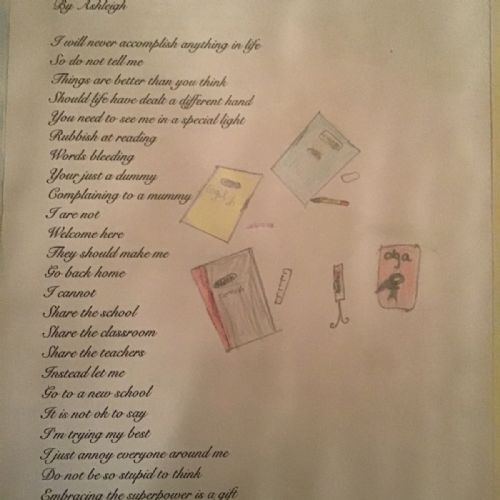 By Ashleigh
I will never accomplish anything in life
So do not tell me
Things are better than you think
Should life have dealt a different hand
You need to see me in a special light
Rubbish at reading
Words bleeding
Your just a dummy
Complaining to a mummy
I are not
Welcome here
They should make me
Go back home
I cannot
Share the school
Share the classroom
Share the teachers
Instead let me
Go to a new school
It is not ok to say
I'm trying my best
I just annoy everyone around me
Do not be so stupid to think
Embracing the superpower is a gift